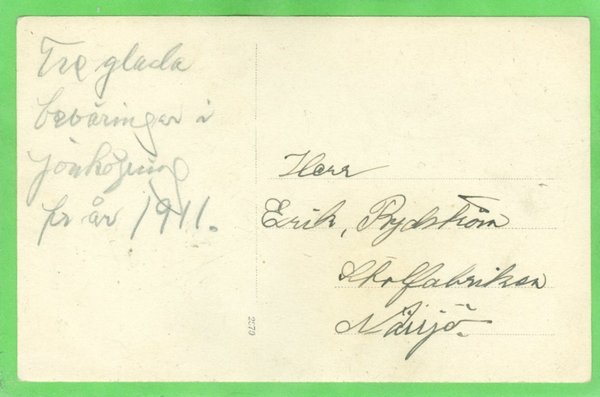 Tre glada
beväringar i
Jönköping
fr år 1911.
Herr
Erik, Frydström
Stolfabriken
Nässjö.
2579